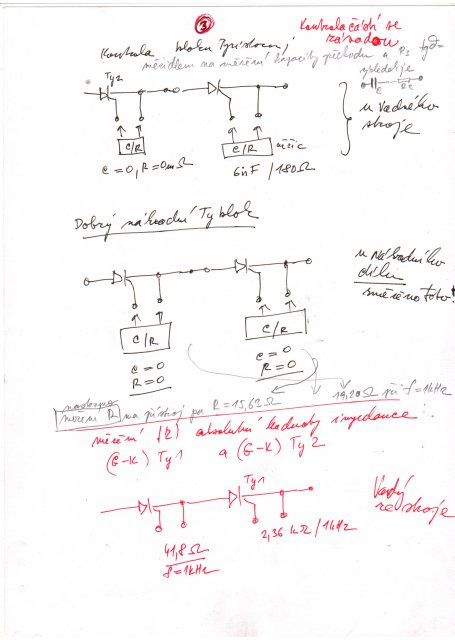 ③
Kontrola částí se
závadou
Kontrola bloku Tyristorů,
měřidlem na měření kapacity přechodu a Rs tgδ=
Ty2
C
C/R
C/R
měřič
C=0, R=0mΩ
6nF / 180Ω
u vadného
stroje
Dobrý náhradní Ty blok
u náhradního
dílu
změřeno toto!
C/R
C/R
C=0
R=0
C=0
R=0
měření R na přístroj pak R=15,62Ω
19,20Ω při f=1kHz
měření |Z| absolutní hodnoty impedance
(G-K) Ty1 a (G-K) Ty2
Ty1
Vadný
ze stroje
41,8Ω
f=1kHz
2,36 kΩ/1kHz